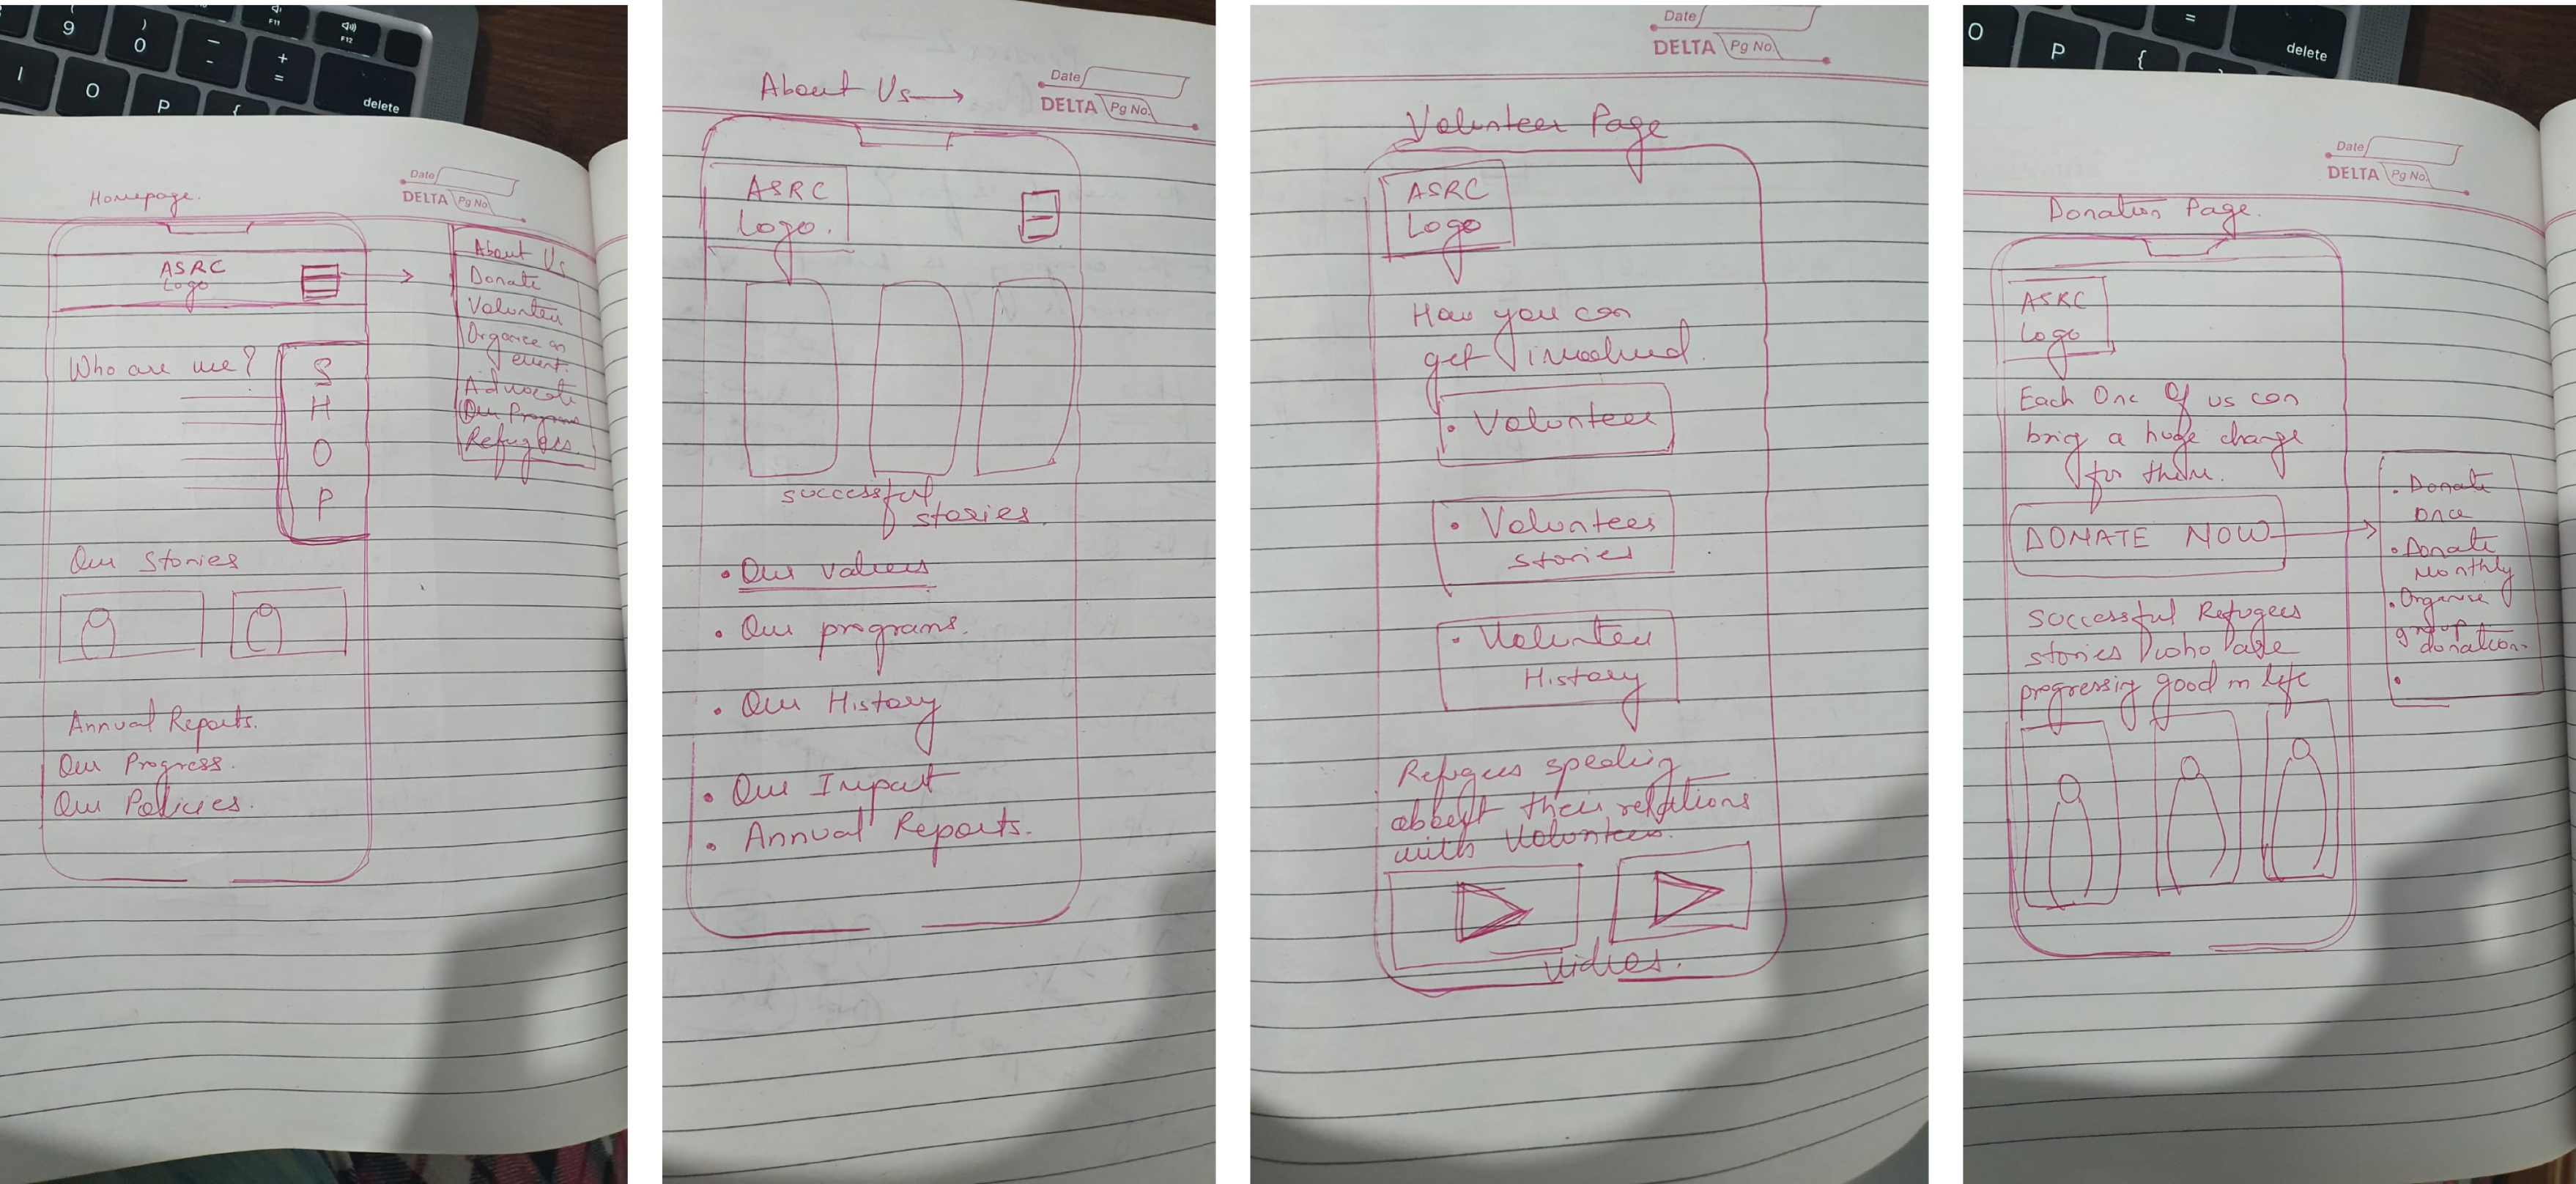 9
)
0
_
-
+
=
F11
F12
I
O
P
{
delete
Date
DELTA Pg No.
Homepage.
ASRC
Logo
About Us
Donate
Volunteer
Organise an
event.
Advocate
Our Programs
Refugees.
Who are we?
S
H
O
P
Our Stories
Annual Reports.
Our Progress.
Our Policies.
About Us
Date
DELTA Pg No.
ASRC
Logo.
successful
stories.
• Our values
• Our programs.
• Our History
• Our Impact
• Annual Reports.
Date
DELTA Pg No.
Volunteer Page
ASRC
Logo
How you can
get involved.
• Volunteer
• Volunteer
stories
• Volunteer
History
Refugees speaking
about their relations
with Volunteer.
videos.
O
P
{
=
delete
Date
DELTA Pg No.
Donation Page.
ASRC
Logo
Each One Of us can
brig a huge change
for them.
DONATE NOW
• Donate
once
• Donate
Monthly
• Organise
group
donation.
•
successful Refugees
stories who are
progressing good in life